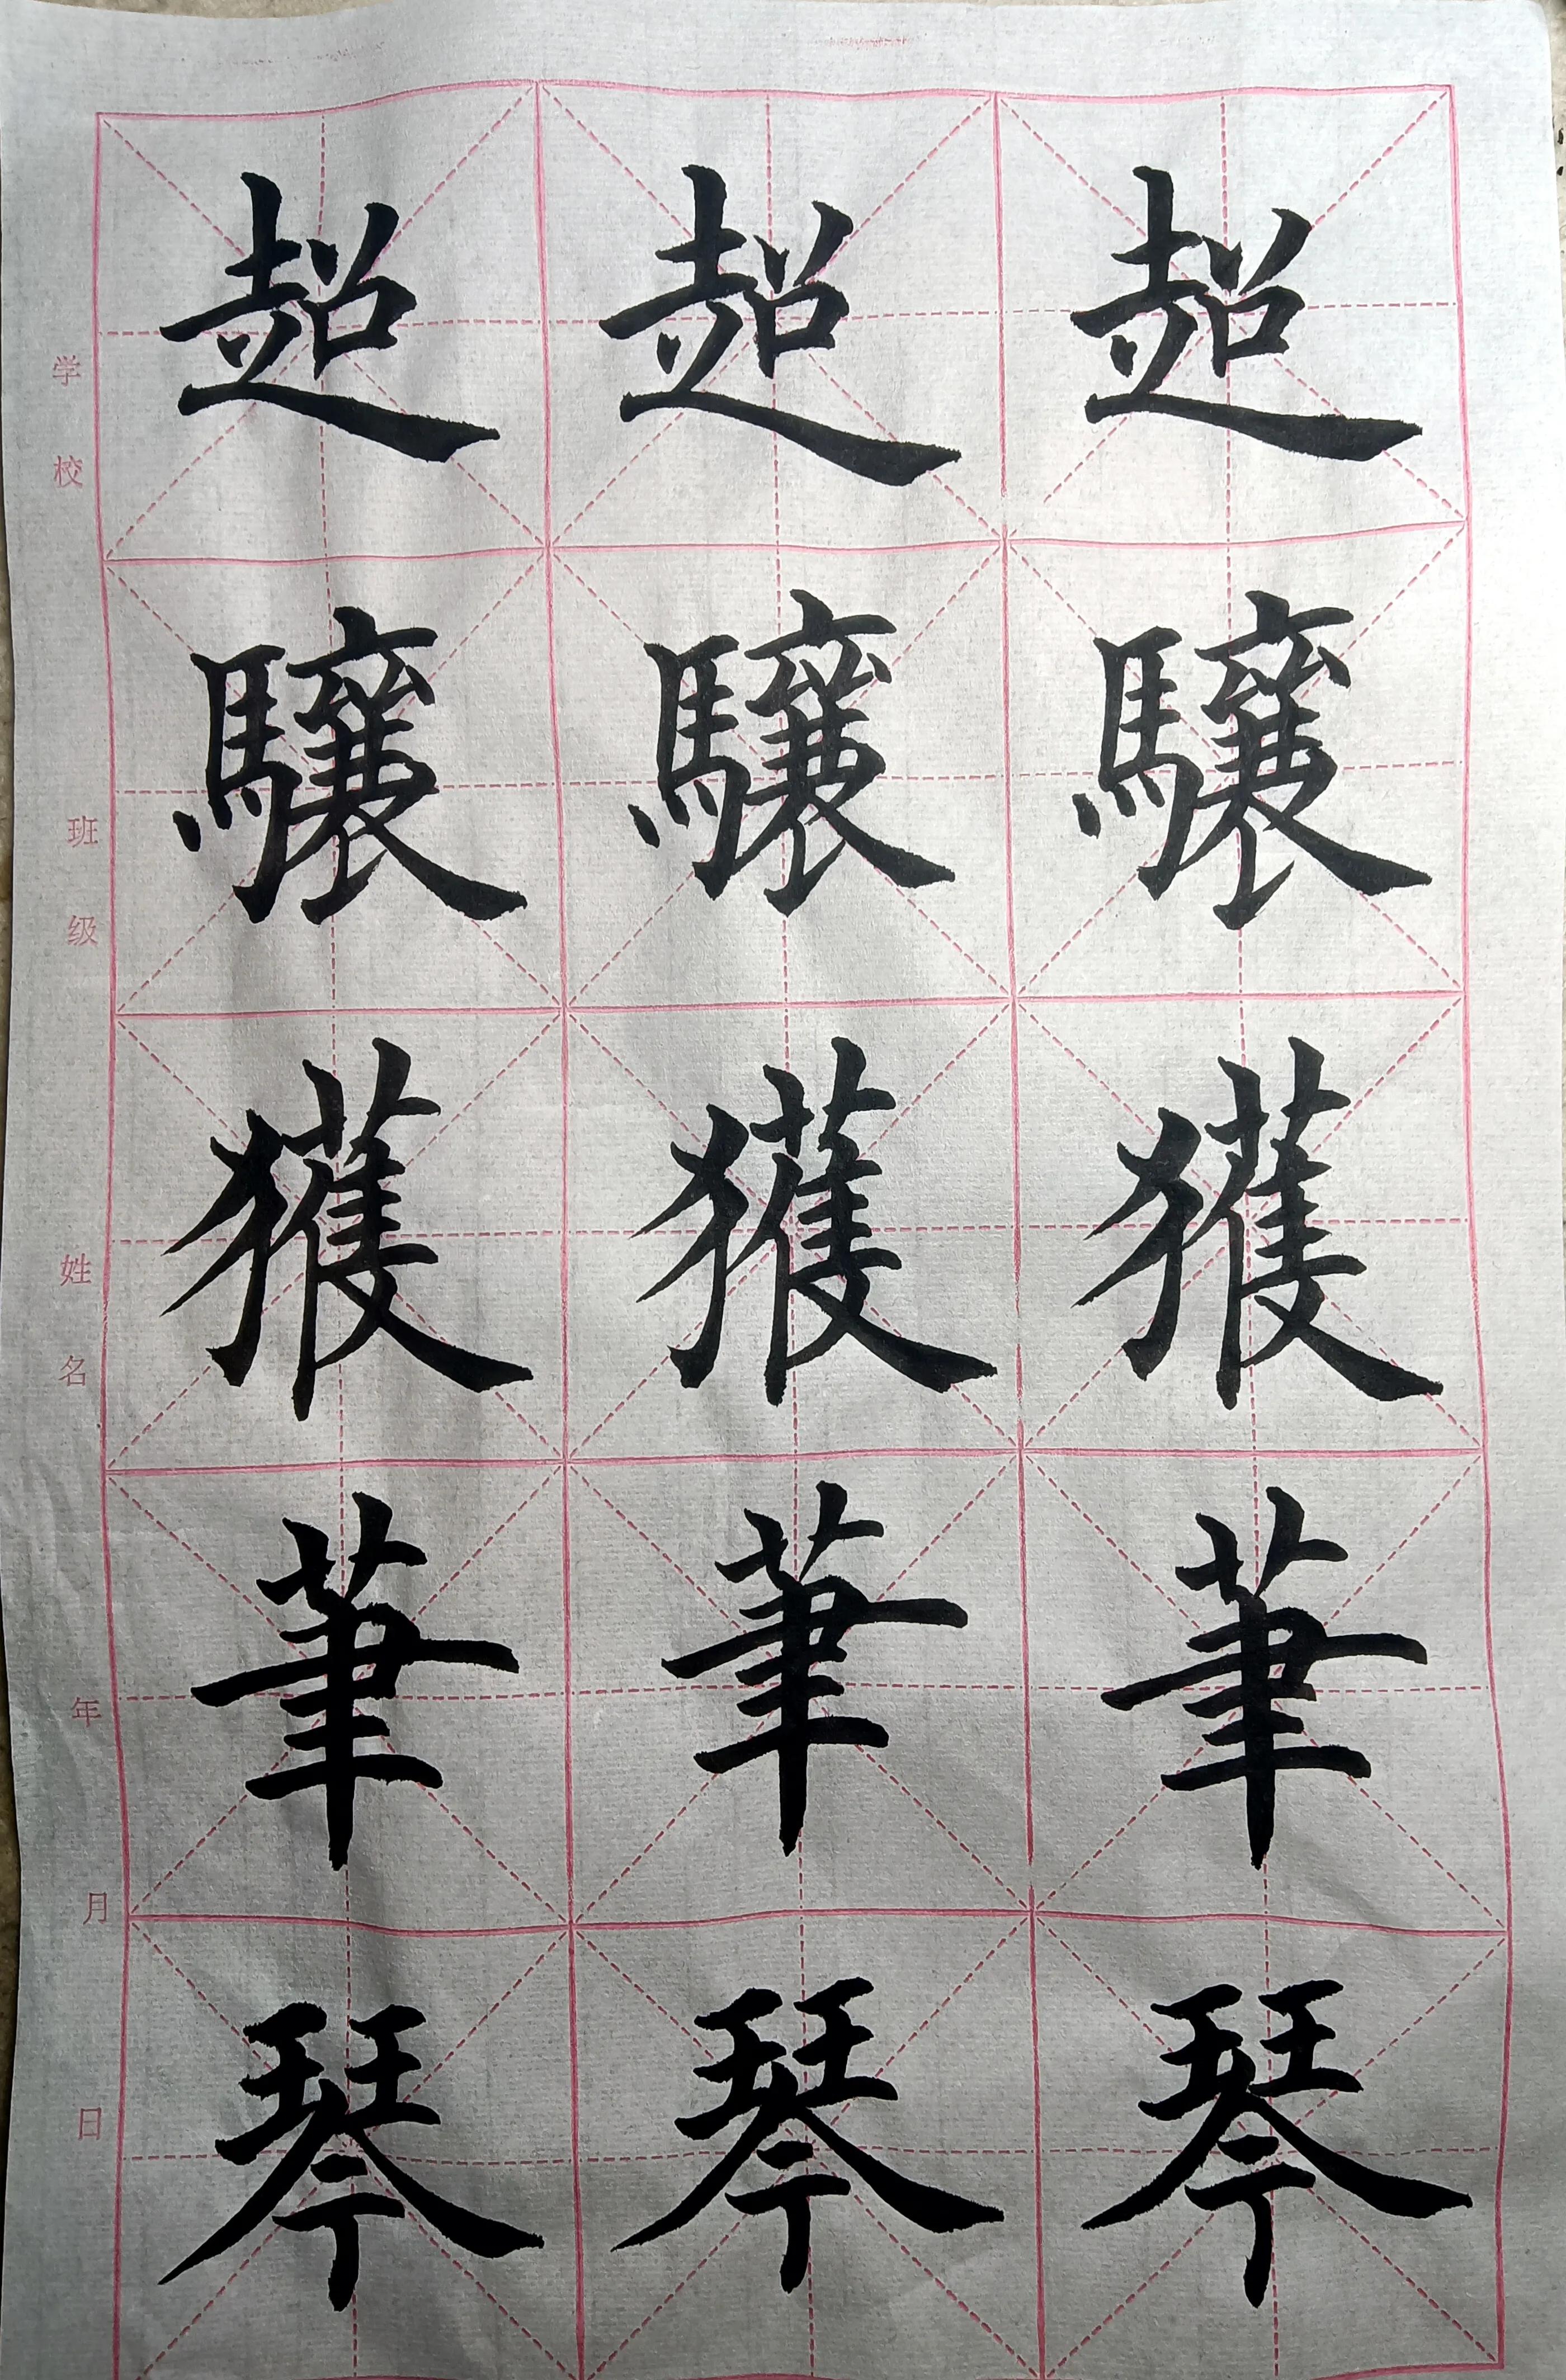 超超超
驤驤驤
獲獲獲
筆筆筆
琴琴琴
学校
班级
姓名
年
月
日